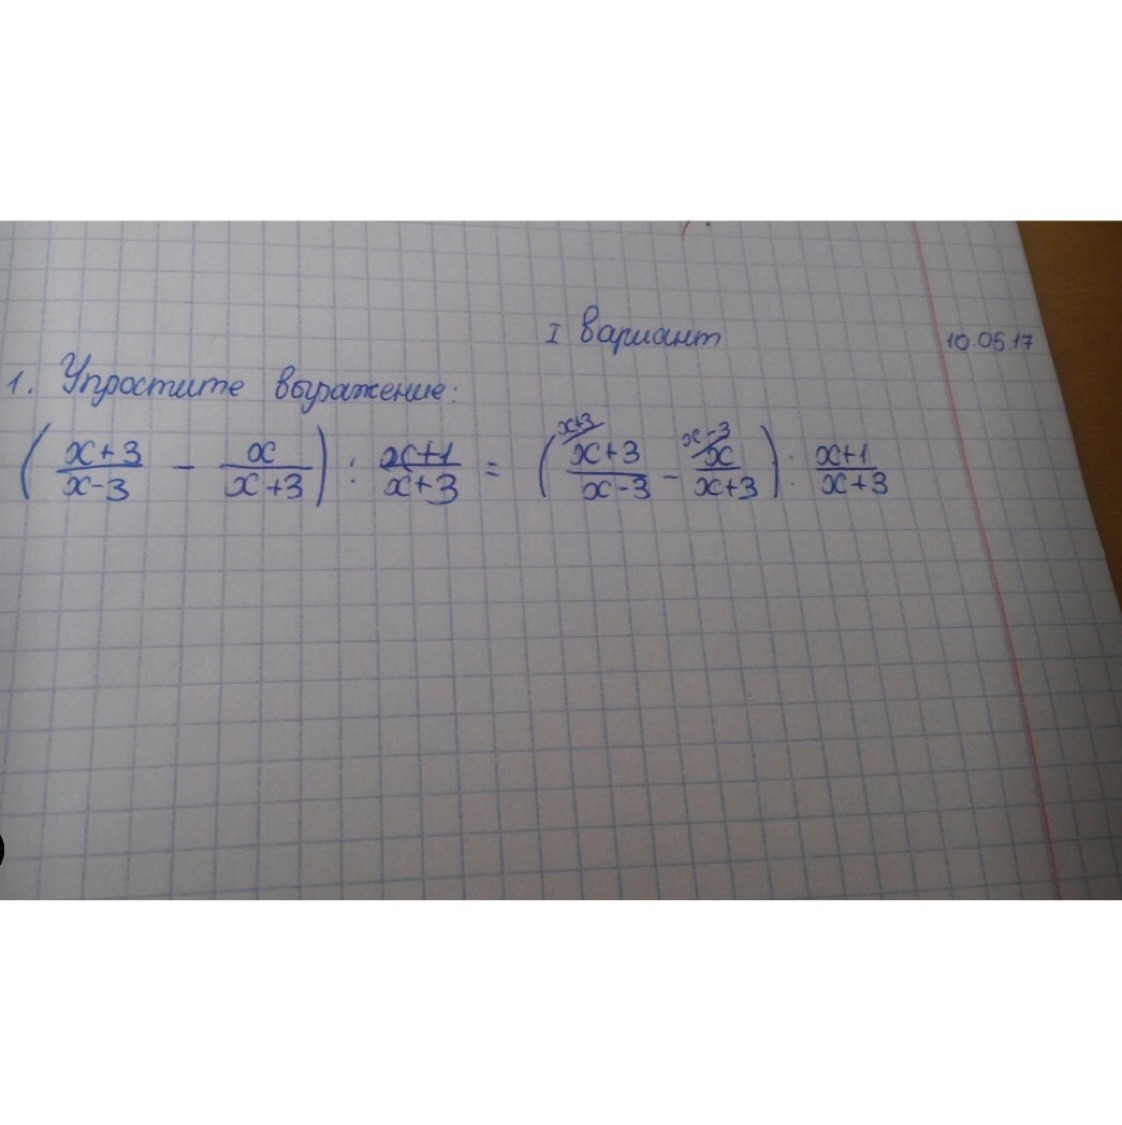 I вариант
10.05.17
1. Упростите выражение:
(x+3/x-3 - x/x+3) : x+1/x+3 = (x+3/ x+3/x-3 - x-3/ x/x+3) : x+1/x+3